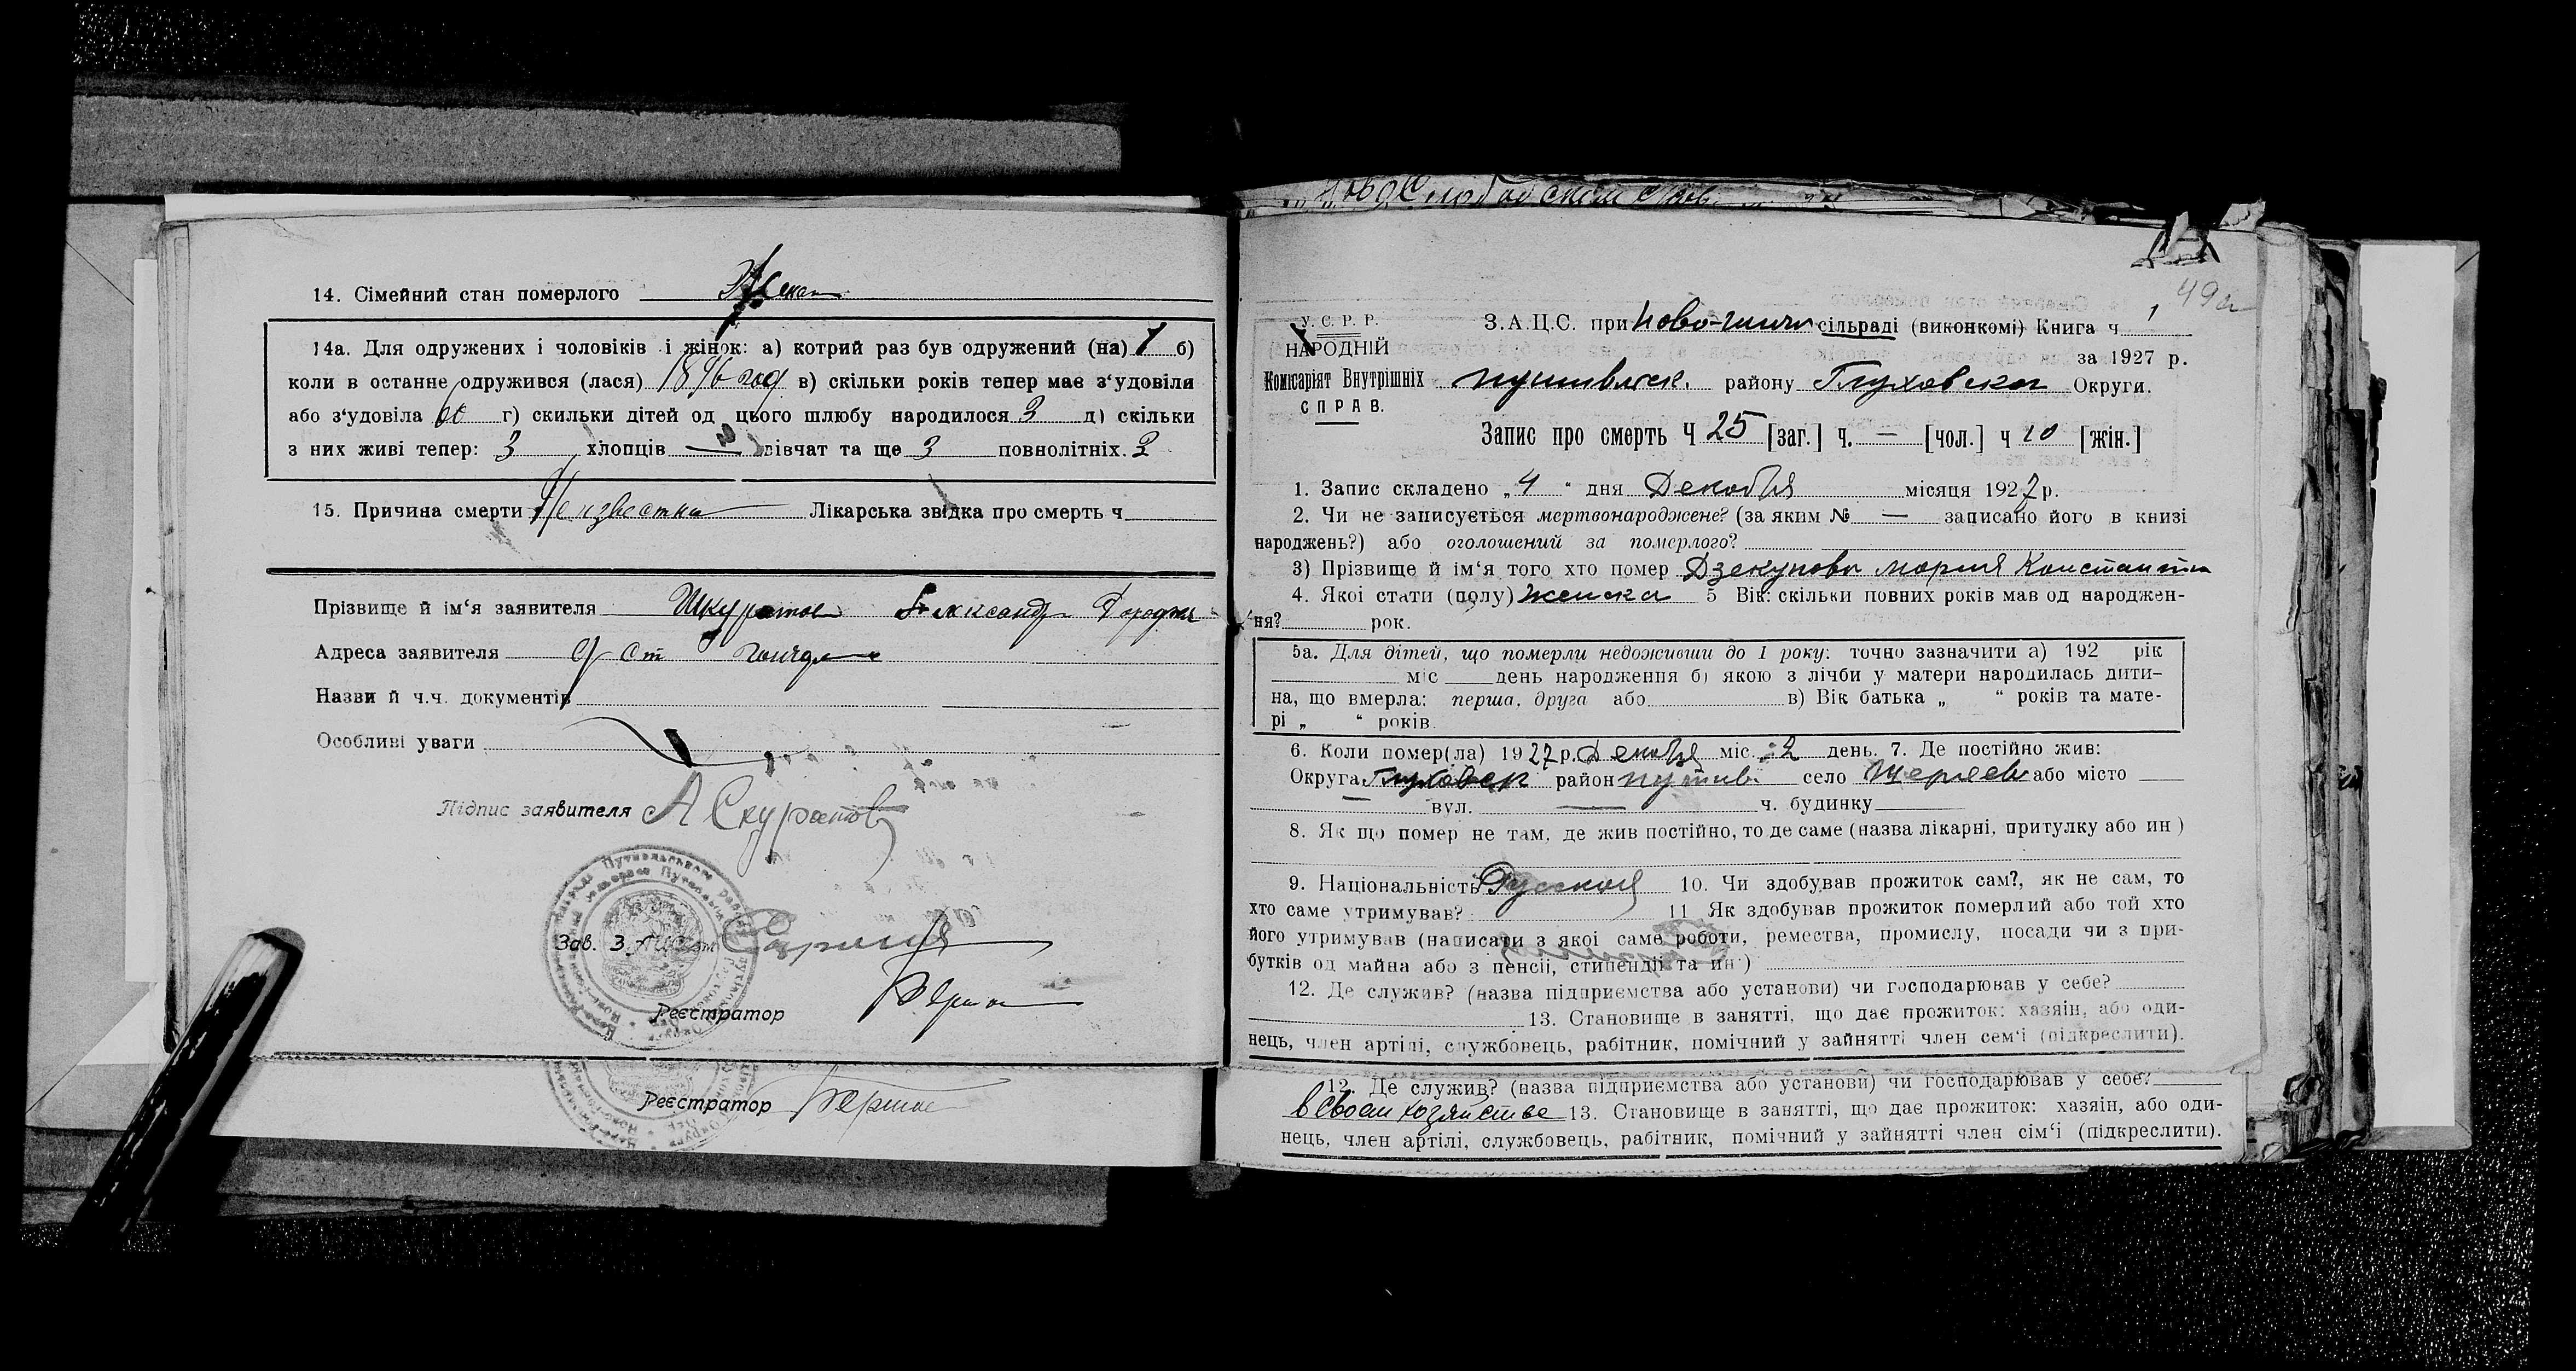 14. Сімейний стан померлого
14а. Для одружених і чоловіків і жінок: а) котрий раз був одружений (на) 1 б)
коли в останне одружився (лася) 1896 год в) скільки років тепер має з‘удовіля
або з‘удовіла г) скильки дітей од цього шлюбу народилося 3 д) скільки
з них живі тепер: 3 хлопців — дівчат та ще 3 повнолітніх. 3
15. Причина смерти Неизвестна Лікарська звідка про смерть ч
Прізвище й ім‘я заявителя Шкуратов Александр
Адреса заявителя
Назви й ч.ч. документів
Особливі уваги
Підпис заявителя А Скуратов
Зав. З.А.Ц.С.
Реєстратор
Реєстратор
49а
У. С. Р. Р.
НАРОДНІЙ
Комісаріят Внутрішніх
СПРАВ.
З.А.Ц.С. при Ново- сільраді (виконкомі) Книга ч 1
за 1927 р.
путивльск. району Глуховской Округи.
Запис про смерть Ч 25 [заг.] ч. — [чол.] ч 10 [жін.]
1. Запис складено „4“ дня Декабря місяця 1927 р.
2. Чи не записується мертвонароджене? (за яким № — записано його в книзі
народжень?) або оголошений за померлого?
3) Прізвище й ім‘я того хто помер Дзекунова мария Константин
4. Якоі стати (полу) женска 5 Вік: скільки повних років мав од народжен-
ня? рок.
5а. Для дітей, що померли недоживши до 1 року: точно зазначити а) 192 рік
міс день народження б) якою з лічби у матери народилась дити-
на, що вмерла: перша, друга або в) Вік батька „ “ років та мате-
рі „ “ років.
6. Коли помер(ла) 1927 р. Декабря міс. 2 день. 7. Де постійно жив:
Округа Глуховск район путив. село або місто —
вул. — ч. будинку
8. Як що помер не там, де жив постійно, то де саме (назва лікарні, притулку або ин)
9. Національність Русская 10. Чи здобував прожиток сам?, як не сам, то
хто саме утримував? 11 Як здобував прожиток померлий або той хто
його утримував (написати з якоі саме роботи, ремества, промислу, посади чи з при-
бутків од майна або з пенсіі, стипендіі та ин)
12. Де служив? (назва підприємства або установи) чи господарював у себе?
13. Становище в занятті, що дає прожиток: хазяін, або оди-
нець, член артілі, службовець, рабітник, помічний у зайнятті член сем‘і (підкреслити).
12. Де служив? (назва підприємства або установи) чи господарював у себе?
в своем хозяйстве 13. Становище в занятті, що дає прожиток: хазяін, або оди-
нець, член артілі, службовець, рабітник, помічний у зайнятті член сім‘і (підкреслити).